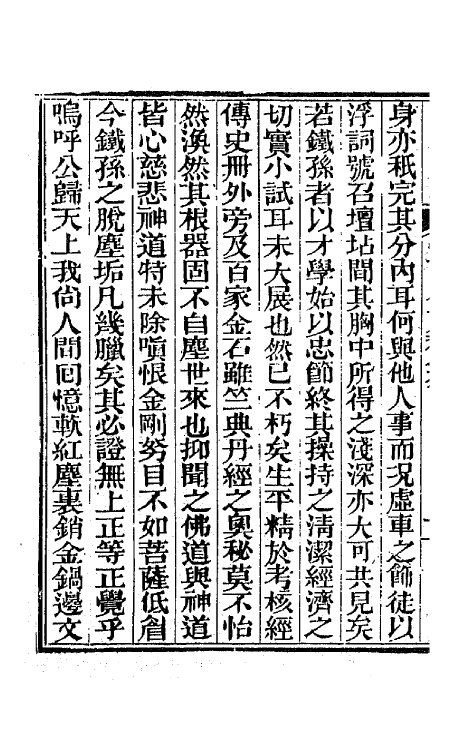 身亦秖完其分內耳何與他人事而況虛車之飾徒以
浮詞號召壇坫間其胸中所得之淺深亦大可共見矣
若鐵孫者以才學始以忠節終其操持之淸潔經濟之
切實小試耳未大展也然已不朽矣生平精於考核經
傳史冊外旁及百家金石雖竺典丹經之奧秘莫不怡
然渙然其根器固不自塵世來也抑聞之佛道與神道
皆心慈悲神道特未除嗔恨金剛努目不如菩薩低眉
今鐵孫之脫塵垢凡幾臘矣其必證無上正等正覺乎
嗚呼公歸天上我尙人間回憶軟紅塵裏銷金鍋邊文